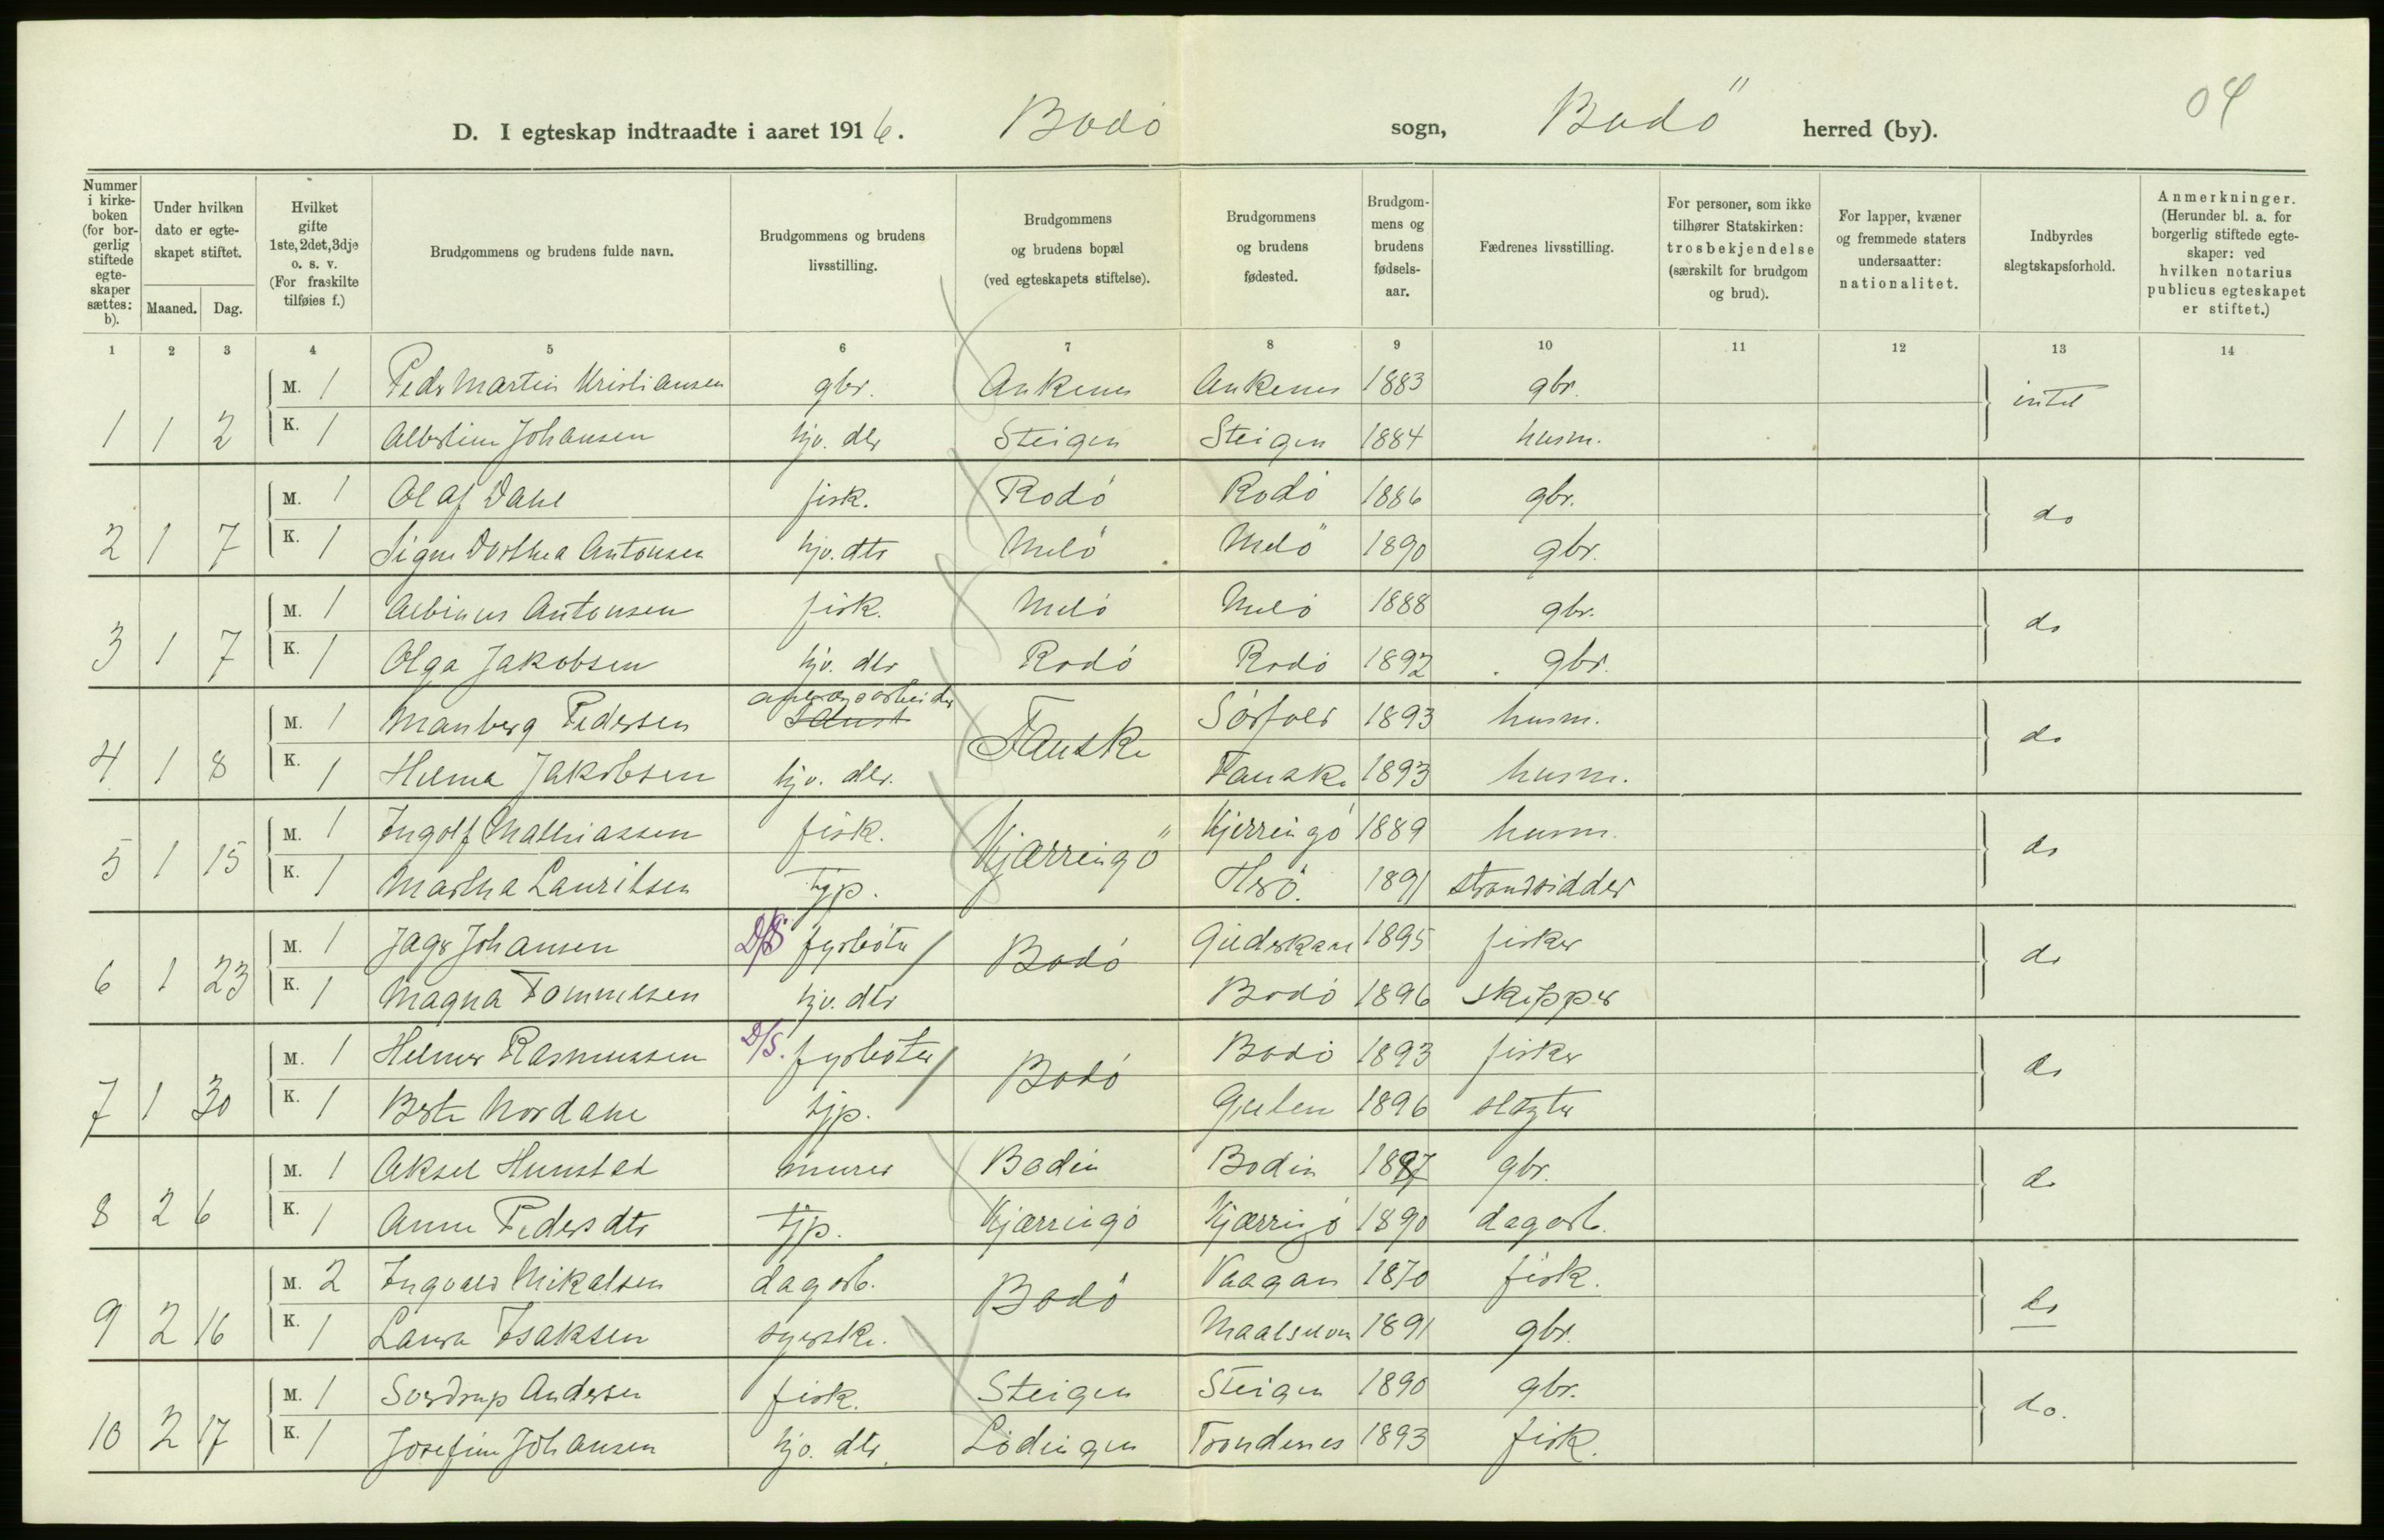 04
D. I egteskap indtraadte i aaret 1916. Bodö sogn, Bodö herred (by).
Nummer i kirke-boken (for bor-gerlig stiftede egte-skaper sættes: b).
Under hvilken dato er egte-skapet stiftet.
Maaned. Dag.
Hvilket gifte 1ste, 2det, 3dje o. s. v. (For fraskilte tilføies f.)
Brudgommens og brudens fulde navn.
Brudgommens og brudens livsstilling.
Brudgommens og brudens bopæl (ved egteskapets stiftelse).
Brudgommens og brudens fødested.
Brudgom-mens og brudens fødsels-aar.
Fædrenes livsstilling.
For personer, som ikke tilhører Statskirken: trosbekjendelse (særskilt for brudgom og brud).
For lapper, kvæner og fremmede staters undersaatter: nationalitet.
Indbyrdes slegtskapsforhold.
Anmerkninger. (Herunder bl. a. for borgerlig stiftede egte-skaper: ved hvilken notarius publicus egteskapet er stiftet.)
1 2 3 4 5 6 7 8 9 10 11 12 13 14
M. 1 Peder Martin Kristiansen gbr. Ankenes Ankenes 1883 gbr. intet
1 1 2 K. 1 Albertine Johansen hjv. dtr Steigen Steigen 1884 husm.
M. 1 Olaf Dahl fisk. Rodö Rodö 1886 gbr. do
2 1 7 K. 1 Signe Dorthea Antonsen hjv. dtr Melö Melö 1890 gbr.
M. 1 Albinus Antonsen fisk. Melö Melö 1888 gbr. do
3 1 7 K. 1 Olga Jakobsen hjv. dtr Rodö Rodö 1892 gbr.
M. 1 Manberg Pedersen Fauske Sörfold 1893 husm. do
4 1 8 K. 1 Helma Jakobsen hjv. dtr. Fauske 1893 husm.
M. 1 Ingolf Mathiassen fisk. Kjærringö Kjerringö 1889 husm. do
5 1 15 K. 1 Martha Lauritsen tjp. Herö. 1891 strandsidder
M. 1 Jagr Johansen D/S fyrböter Bodö Gildeskaal 1895 fisker do
6 1 23 K. 1 Magna Tommelsen hjv. dtr Bodö 1896 skipper
M. 1 Helmer Rasmussen D/S. fyrböter Bodö Bodö 1893 fisker do
7 1 30 K. 1 Berte Nordahl tjp. Gulen 1896 slagter
M. 1 Aksel Hunstad murer Bodin Bodin 1887 gbr. do
8 2 6 K. 1 Anne Pedersdtr tjp. Kjærringö Kjærringö 1890 dagarb.
M. 2 Ingvald Mikalsen dagarb. Bodö Vaagan 1870 fisk. do
9 2 16 K. 1 Laura Isaksen syerske. Maalselven 1891 gbr.
M. 1 Sverdrup Andersen fisk. Steigen Steigen 1890 gbr. do.
10 2 17 K. 1 Josefine Johansen hjv. dtr. Lödingen Trondenes 1893 fisk.